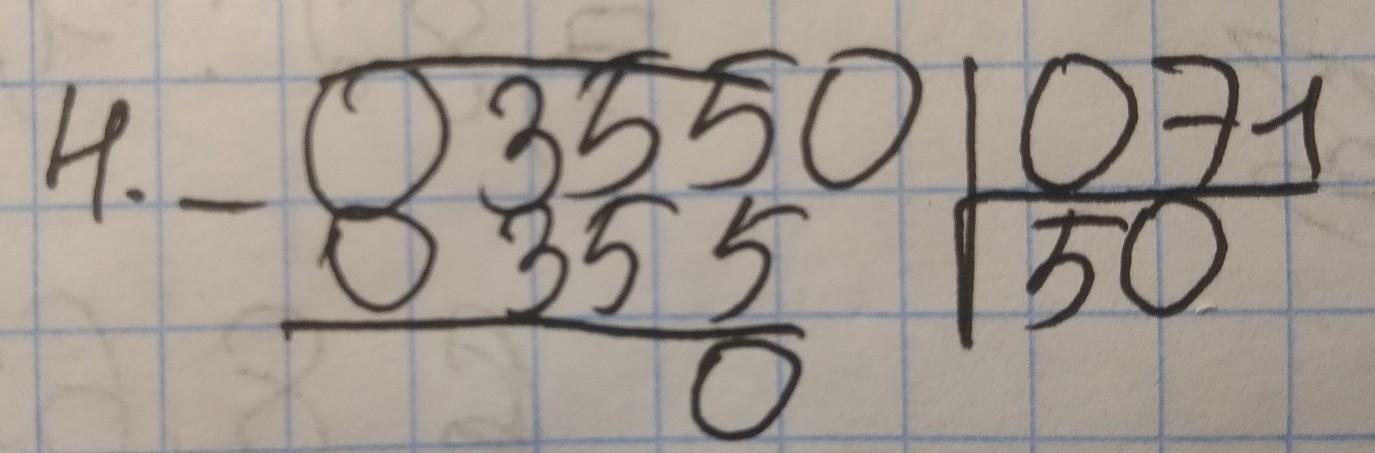 4. - 03550 | 071
0355 | 50
0